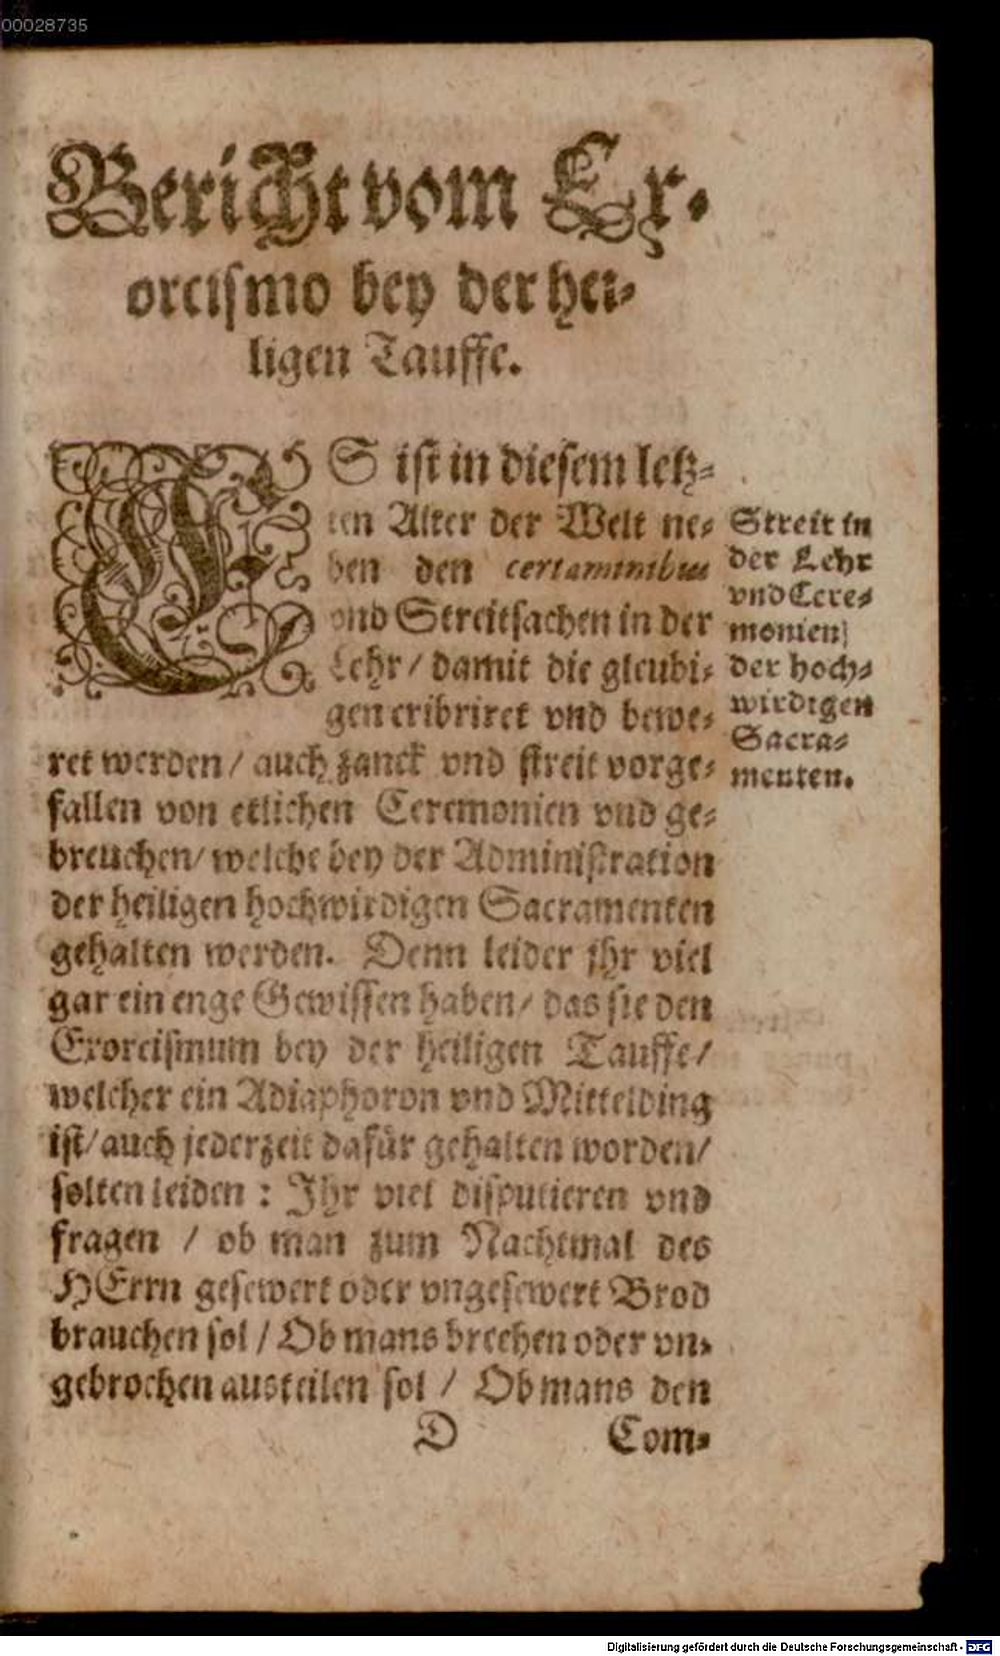 00028735
Bericht vom Ex-
orcismo bey der hei-
ligen Tauffe.
ES ist in diesem letz-
ten Alter der Welt ne-
ben den certaminibus
vnd Streitsachen in der
Lehr / damit die gleubi-
gen cribriret vnd bewe-
ret werden / auch zanck vnd streit vorge-
fallen von etlichen Ceremonien vnd ge-
breuchen / welche bey der Administration
der heiligen hochwirdigen Sacramenten
gehalten werden. Denn leider jhr viel
gar ein enge Gewissen haben / das sie den
Exorcismum bey der heiligen Tauffe /
welcher ein Adiaphoron vnd Mittelding
ist / auch jederzeit dafür gehalten worden /
solten leiden : Jhr viel disputieren vnd
fragen / ob man zum Nachtmal des
HErrn gesewert oder vngesewert Brod
brauchen sol / Ob mans brechen oder vn-
gebrochen austeilen sol / Ob mans den
D Com-
Streit in
der Lehr
vnd Cere-
monien
der hoch-
wirdigen
Sacra-
menten.
Digitalisierung gefördert durch die Deutsche Forschungsgemeinschaft - DFG